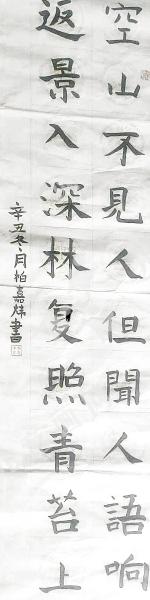 空山不見人但聞人語响
返景入深林复照青苔上
辛丑冬月柏嘉炜書